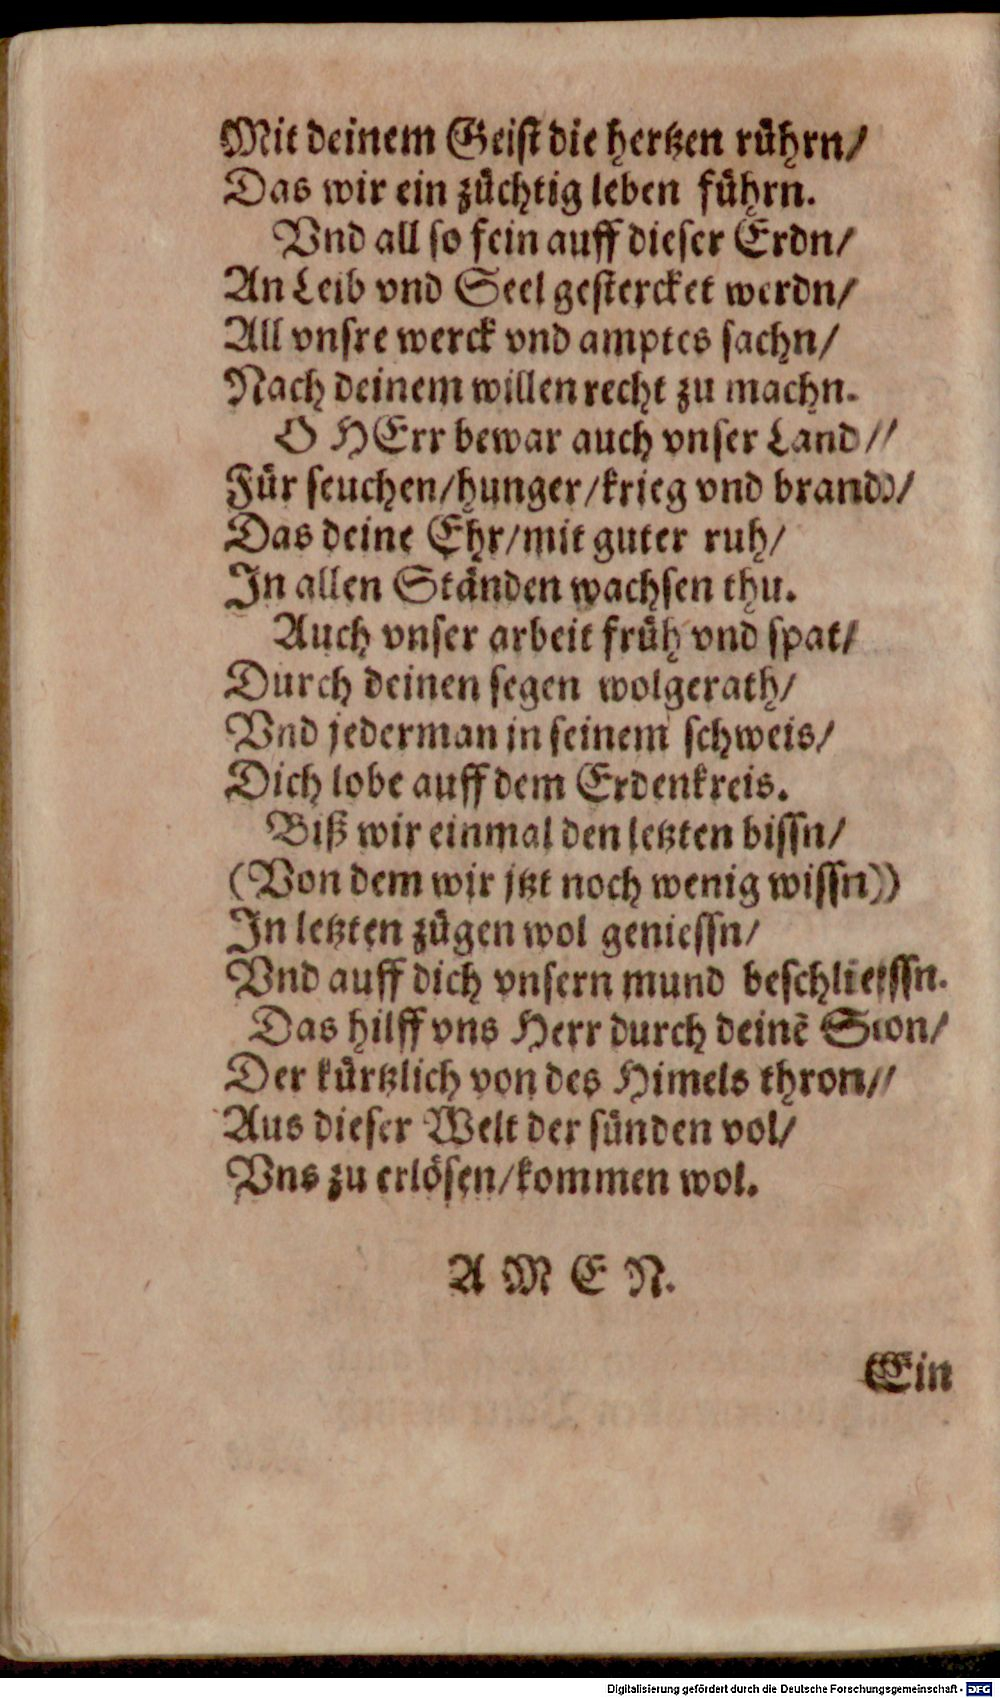 Mit deinem Geist die hertzen rührn/
Das wir ein züchtig leben führn.
Vnd all so fein auff dieser Erdn/
An Leib vnd Seel gestercket werdn/
All vnsre werck vnd amptes sachn/
Nach deinem willen recht zu machn.
O HErr bewar auch vnser Land/
Für seuchen/hunger/krieg vnd brand/
Das deine Ehr/mit guter ruh/
In allen Ständen wachsen thu.
Auch vnser arbeit früh vnd spat/
Durch deinen segen wolgerath/
Vnd jederman in seinem schweis/
Dich lobe auff dem Erdenkreis.
Biß wir einmal den letzten bissn/
(Von dem wir jtzt noch wenig wissn)
In letzten zügen wol geniessn/
Vnd auff dich vnsern mund beschliessn.
Das hilff vns Herr durch deinē Sion/
Der kürtzlich von des Himels thron/
Aus dieser Welt der sünden vol/
Vns zu erlösen/kommen wol.
A M E N.
Ein
Digitalisierung gefördert durch die Deutsche Forschungsgemeinschaft - DFG